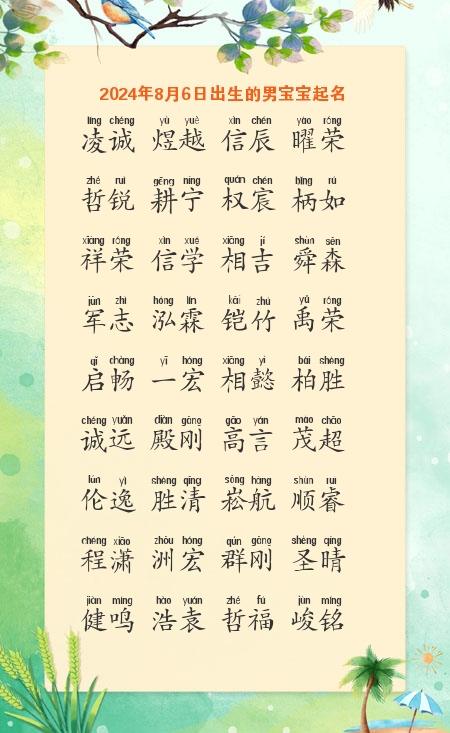 2024年8月6日出生的男宝宝起名
líng chéng yù yuè xìn chén yào róng
凌诚 煜越 信辰 曜荣
zhé ruì gēng níng quán chén bǐng rú
哲锐 耕宁 权宸 柄如
xiáng róng xìn xué xiāng jí shùn sēn
祥荣 信学 相吉 舜森
jūn zhì hóng lín kǎi zhú yǔ róng
军志 泓霖 铠竹 禹荣
qǐ chàng yī hóng xiāng yì bǎi shèng
启畅 一宏 相懿 柏胜
chéng yuǎn diàn gāng gāo yán mào chāo
诚远 殿刚 高言 茂超
lún yì shèng qīng sōng háng shùn ruì
伦逸 胜清 崧航 顺睿
chéng xiāo zhōu hóng qún gāng shèng qíng
程潇 洲宏 群刚 圣晴
jiàn míng hào yuán zhé fú jùn míng
健鸣 浩袁 哲福 峻铭